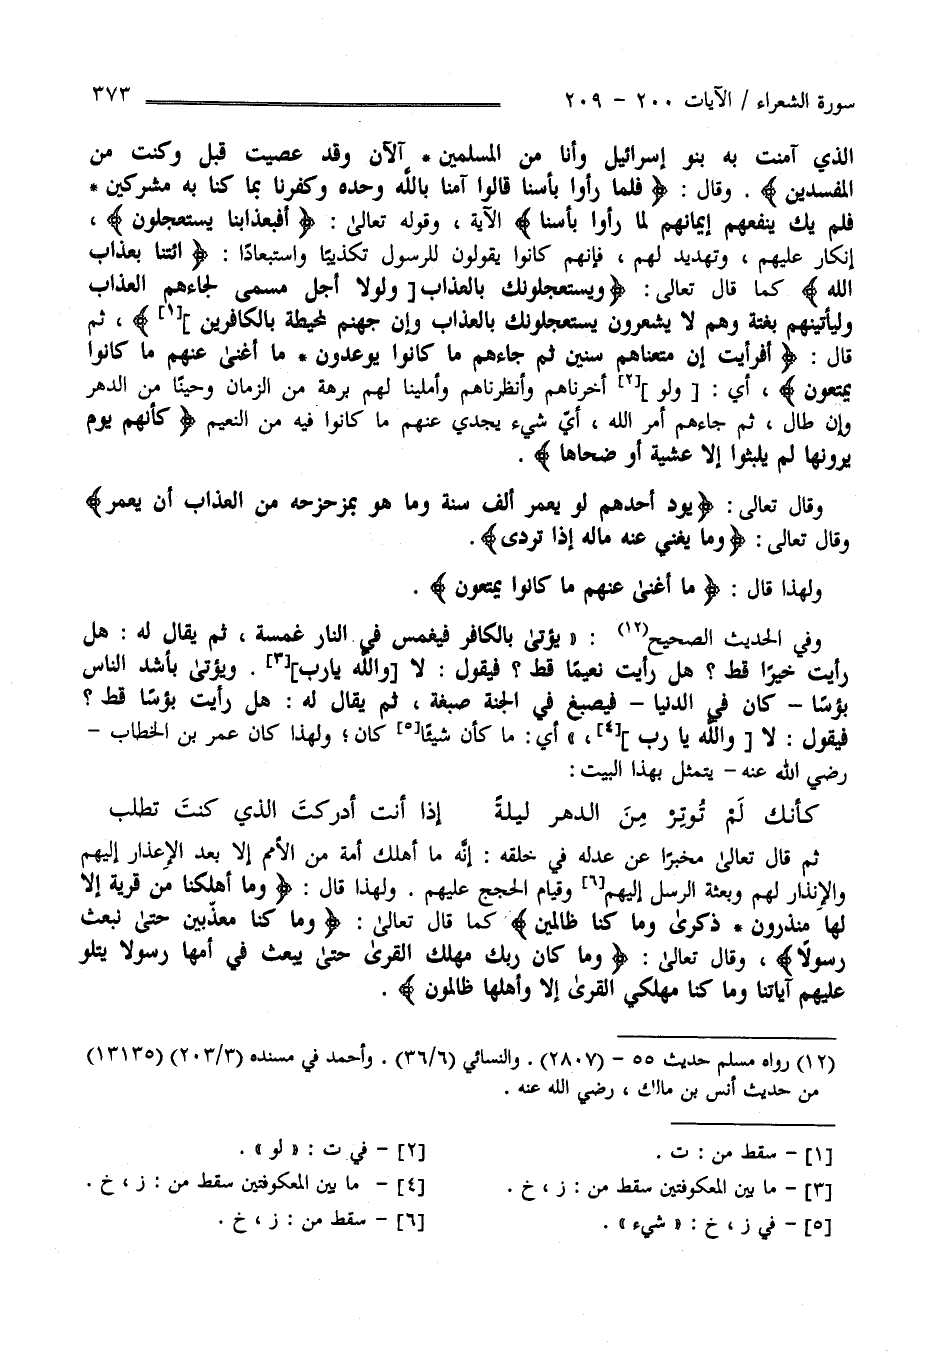 سورة الشعراء / الآيات ٢٠٠ - ٢٠٩ ٣٧٣
الذي آمنت به بنو إسرائيل وأنا من المسلمين * آلآن وقد عصيت قبل وكنت من
المفسدين ﴾ . وقال : ﴿ فلما رأوا بأسنا قالوا آمنا باللَّه وحده وكفرنا بما كنا به مشركين *
فلم يك ينفعهم إيمانهم لما رأوا بأسنا ﴾ الآية ، وقوله تعالىٰ : ﴿ أفبعذابنا يستعجلون ﴾ ،
إنكار عليهم ، وتهديد لهم ، فإنهم كانوا يقولون للرسول تكذيبًا واستبعادًا : ﴿ ائتنا بعذاب
الله ﴾ كما قال تعالى : ﴿ ويستعجلونك بالعذاب [ ولولا أجل مسمى لجاءهم العذاب
وليأتينهم بغتة وهم لا يشعرون يستعجلونك بالعذاب وإن جهنم لمحيطة بالكافرين ][١] ﴾ ، ثم
قال : ﴿ أفرأيت إن متعناهم سنين ثم جاءهم ما كانوا يوعدون * ما أغنىٰ عنهم ما كانوا
يمتعون ﴾ ، أي : [ ولو ][٢] أخرناهم وأنظرناهم وأملينا لهم برهة من الزمان وحينًا من الدهر
وإن طال ، ثم جاءهم أمر الله ، أيّ شيء يجدي عنهم ما كانوا فيه من النعيم ﴿ كأنهم يوم
يرونها لم يلبثوا إلا عشية أو ضحاها ﴾ .
وقال تعالى : ﴿ يود أحدهم لو يعمر ألف سنة وما هو بمزحزحه من العذاب أن يعمر ﴾
وقال تعالى : ﴿ وما يغني عنه ماله إذا تردى ﴾ .
ولهذا قال : ﴿ ما أغنىٰ عنهم ما كانوا يمتعون ﴾ .
وفي الحديث الصحيح(١٢) : « يؤتىٰ بالكافر فيغمس في النار غمسة ، ثم يقال له : هل
رأيت خيرًا قط ؟ هل رأيت نعيمًا قط ؟ فيقول : لا [واللَّه يارب][٣] . ويؤتىٰ بأشد الناس
بؤسًا - كان في الدنيا - فيصبغ في الجنة صبغة ، ثم يقال له : هل رأيت بؤسًا قط ؟
فيقول : لا [ واللَّه يا رب ][٤] ، » أي : ما كأن شيئًا[٥] كان ؛ ولهذا كان عمر بن الخطاب -
رضي الله عنه - يتمثل بهذا البيت :
كأنك لَمْ تُوتِرْ مِنَ الدهر ليلةً إذا أنت أدركتَ الذي كنتَ تطلب
ثم قال تعالىٰ مخبرًا عن عدله في خلقه : إنَّه ما أهلك أمة من الأمم إلا بعد الإعذار إليهم
والإنذار لهم وبعثة الرسل إليهم[٦] وقيام الحجج عليهم . ولهذا قال : ﴿ وما أهلكنا من قرية إلا
لها منذرون * ذكرىٰ وما كنا ظالمين ﴾ كما قال تعالىٰ : ﴿ وما كنا معذّبين حتىٰ نبعث
رسولًا ﴾ ، وقال تعالىٰ : ﴿ وما كان ربك مهلك القرىٰ حتىٰ يبعث في أمها رسولا يتلو
عليهم آياتنا وما كنا مهلكي القرىٰ إلا وأهلها ظالمون ﴾ .
(١٢) رواه مسلم حديث ٥٥ - (٢٨٠٧) . والنسائي (٣٦/٦) . وأحمد في مسنده (٢٠٣/٣) (١٣١٣٥)
من حديث أنس بن مالك ، رضي الله عنه .
[١] - سقط من : ت . [٢] - في ت : « لو » .
[٣] - ما بين المعكوفتين سقط من : ز ، خ . [٤] - ما بين المعكوفتين سقط من : ز ، خ .
[٥] - في ز ، خ : « شيء » . [٦] - سقط من : ز ، خ .